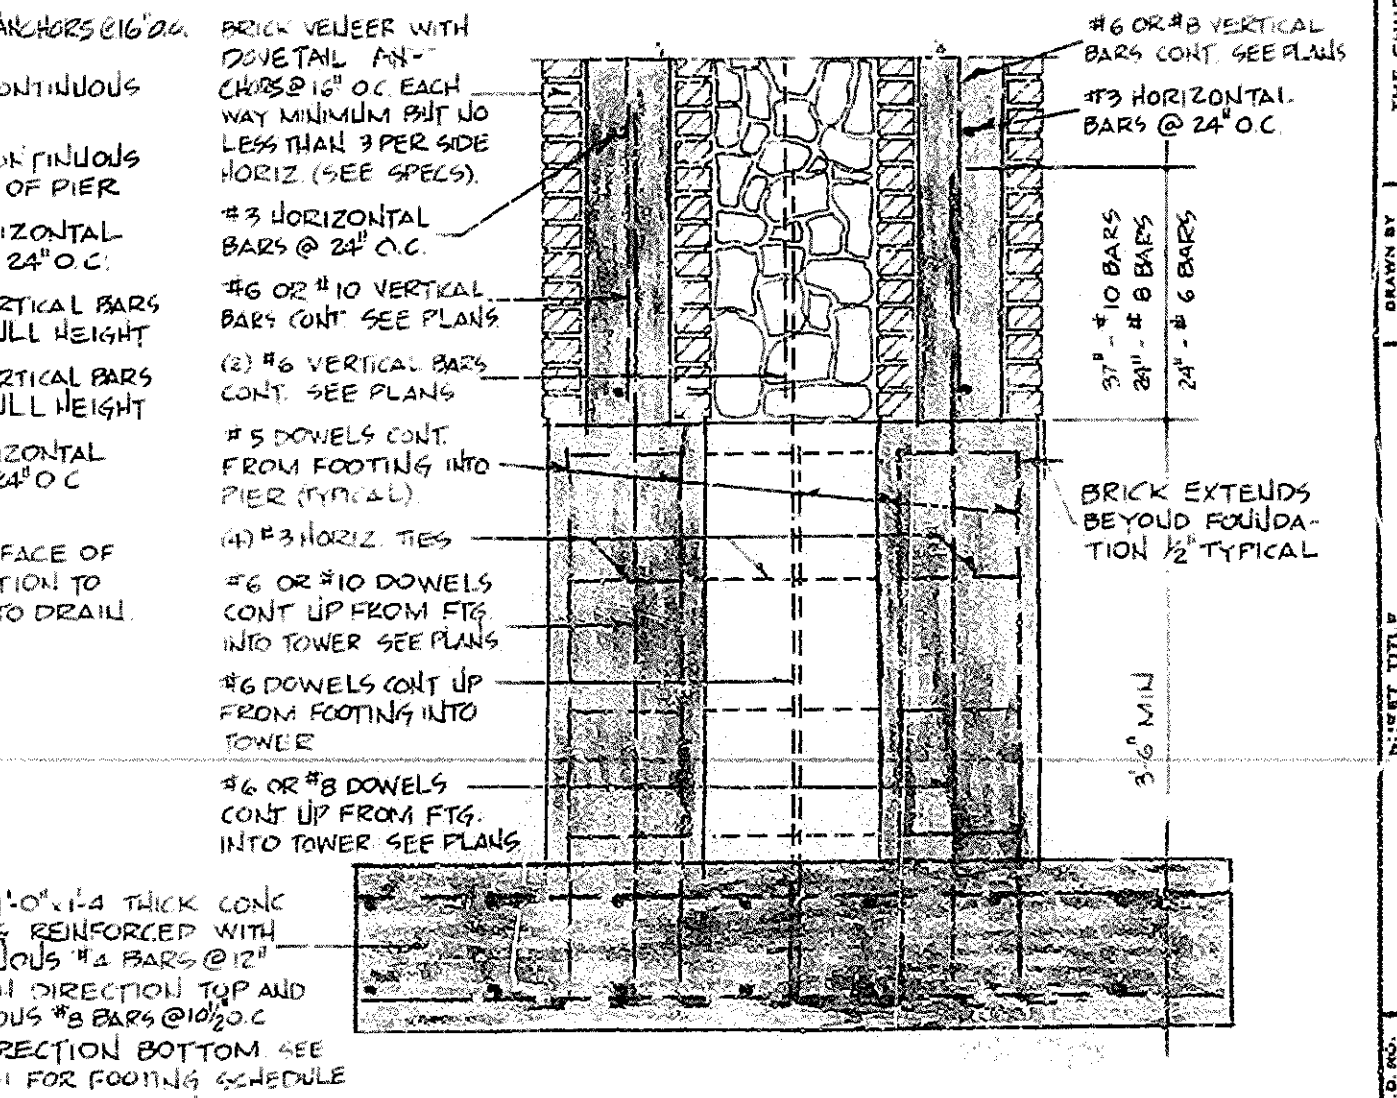 ANCHORS @16" O.C.
CONTINUOUS
CONTINUOUS
OF PIER
24" O.C.
VERTICAL BARS
FULL HEIGHT
VERTICAL BARS
FULL HEIGHT
24" O C
FACE OF
TO DRAIN.
BRICK VENEER WITH
DOVETAIL AN-
CHORS @ 16" O.C. EACH
WAY MINIMUM BUT NO
LESS THAN 3 PER SIDE
HORIZ. (SEE SPECS).
#3 HORIZONTAL
BARS @ 24" O.C.
#6 OR #10 VERTICAL
BARS CONT. SEE PLANS
(2) #6 VERTICAL BARS
CONT. SEE PLANS
#5 DOWELS CONT.
FROM FOOTING INTO
PIER (TYPICAL)
(4) #3 HORIZ. TIES
#6 OR #10 DOWELS
CONT UP FROM FTG.
INTO TOWER SEE PLANS
#6 DOWELS CONT UP
FROM FOOTING INTO
TOWER
#6 OR #8 DOWELS
CONT UP FROM FTG.
INTO TOWER SEE PLANS
THICK CONC
REINFORCED WITH
#4 BARS @ 12"
DIRECTION TOP AND
#8 BARS @ 10½ O.C
DIRECTION BOTTOM. SEE
FOR FOOTING SCHEDULE
#6 OR #8 VERTICAL
BARS CONT. SEE PLANS
#3 HORIZONTAL
BARS @ 24" O.C.
37" - #10 BARS
24" - #8 BARS
24" - #6 BARS
BRICK EXTENDS
BEYOND FOUNDA-
TION ½" TYPICAL
3'6" MIN
DRAWN BY
SHEET TITLE